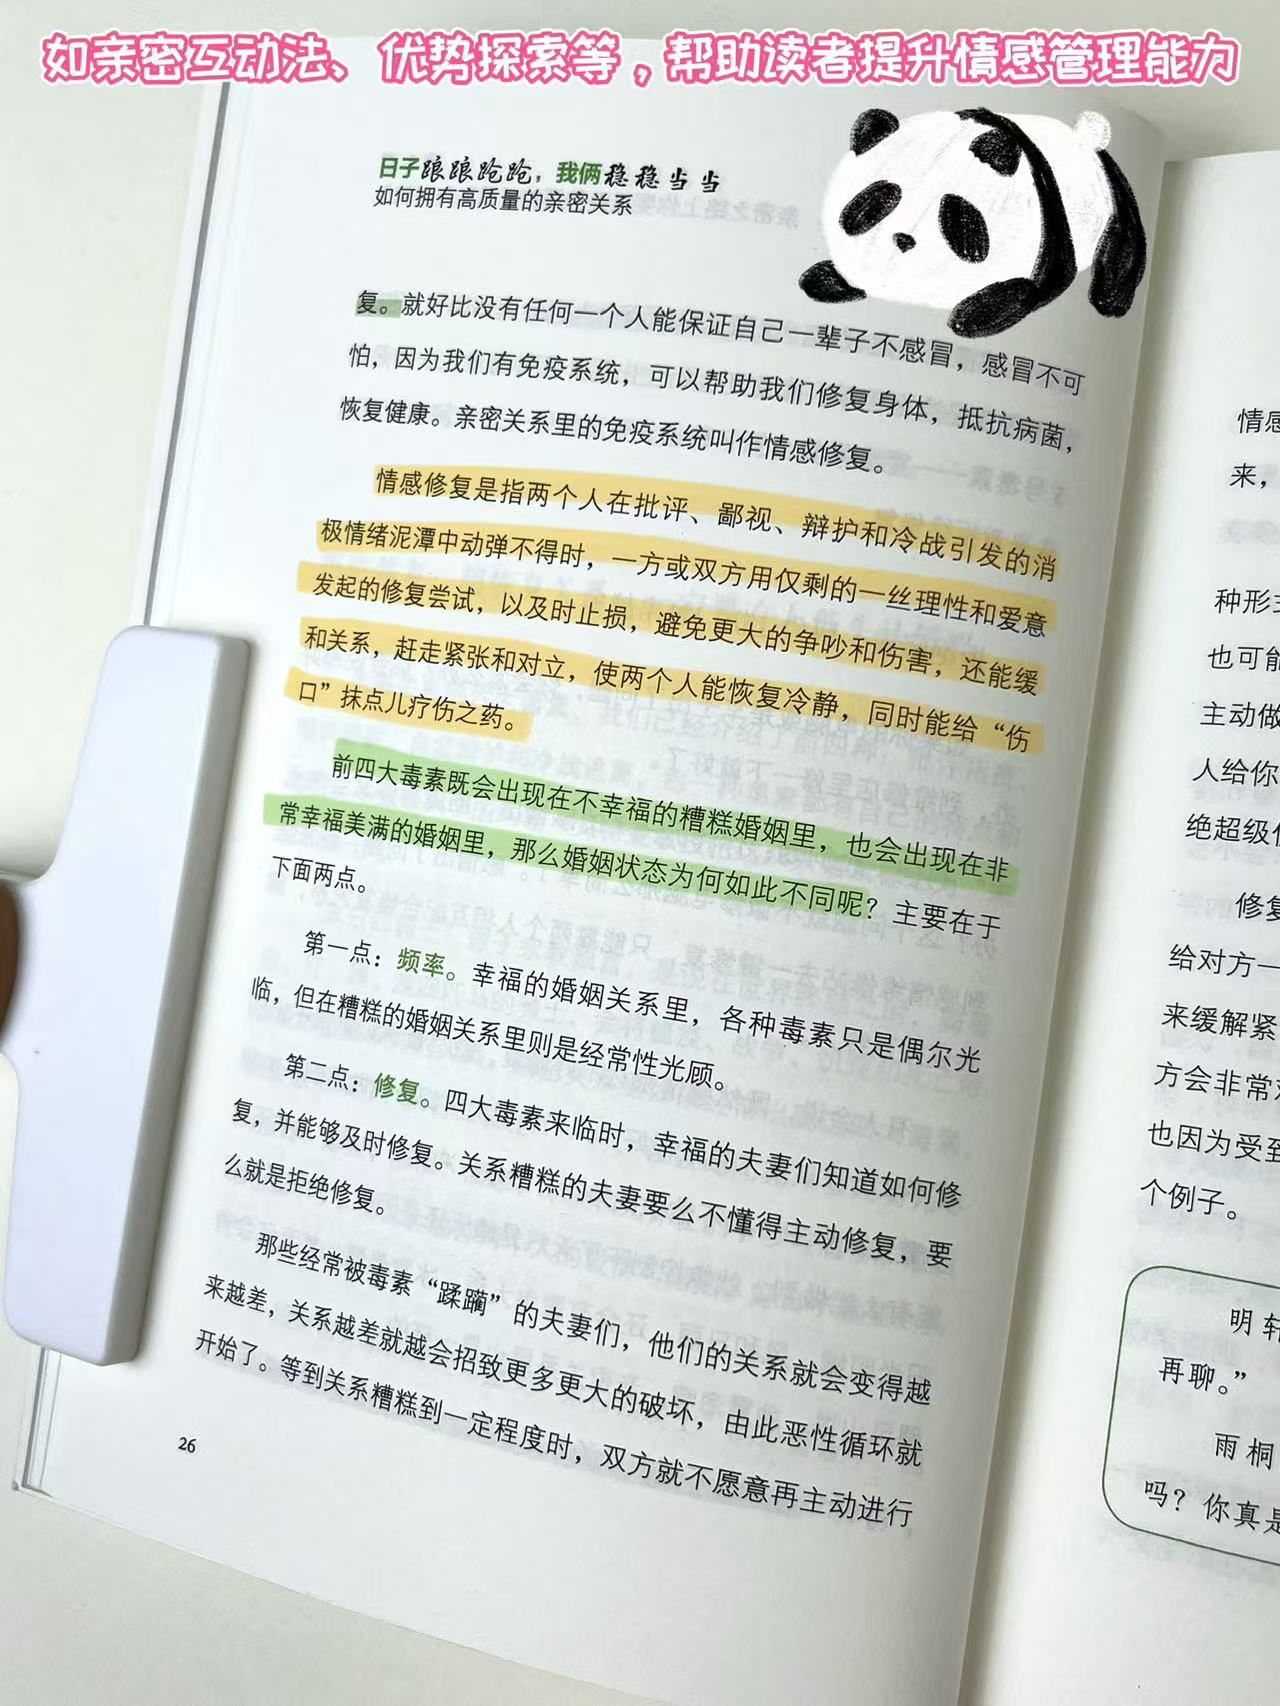 如亲密互动法、优势探索等，帮助读者提升情感管理能力
日子踉踉跄跄，我俩稳稳当当
如何拥有高质量的亲密关系
复。就好比没有任何一个人能保证自己一辈子不感冒，感冒不可
怕，因为我们有免疫系统，可以帮助我们修复身体，抵抗病菌，
恢复健康。亲密关系里的免疫系统叫作情感修复。
情感修复是指两个人在批评、鄙视、辩护和冷战引发的消
极情绪泥潭中动弹不得时，一方或双方用仅剩的一丝理性和爱意
发起的修复尝试，以及时止损，避免更大的争吵和伤害，还能缓
和关系，赶走紧张和对立，使两个人能恢复冷静，同时能给“伤
口”抹点儿疗伤之药。
前四大毒素既会出现在不幸福的糟糕婚姻里，也会出现在非
常幸福美满的婚姻里，那么婚姻状态为何如此不同呢？主要在于
下面两点。
第一点：频率。幸福的婚姻关系里，各种毒素只是偶尔光
临，但在糟糕的婚姻关系里则是经常性光顾。
第二点：修复。四大毒素来临时，幸福的夫妻们知道如何修
复，并能够及时修复。关系糟糕的夫妻要么不懂得主动修复，要
么就是拒绝修复。
那些经常被毒素“蹂躏”的夫妻们，他们的关系就会变得越
来越差，关系越差就越会招致更多更大的破坏，由此恶性循环就
开始了。等到关系糟糕到一定程度时，双方就不愿意再主动进行
26
情感
来，
种形式
也可能
主动做
人给你
绝超级
修复
给对方一
来缓解紧
方会非常
也因为受到
个例子。
明轩
再聊。”
雨桐
吗？你真是